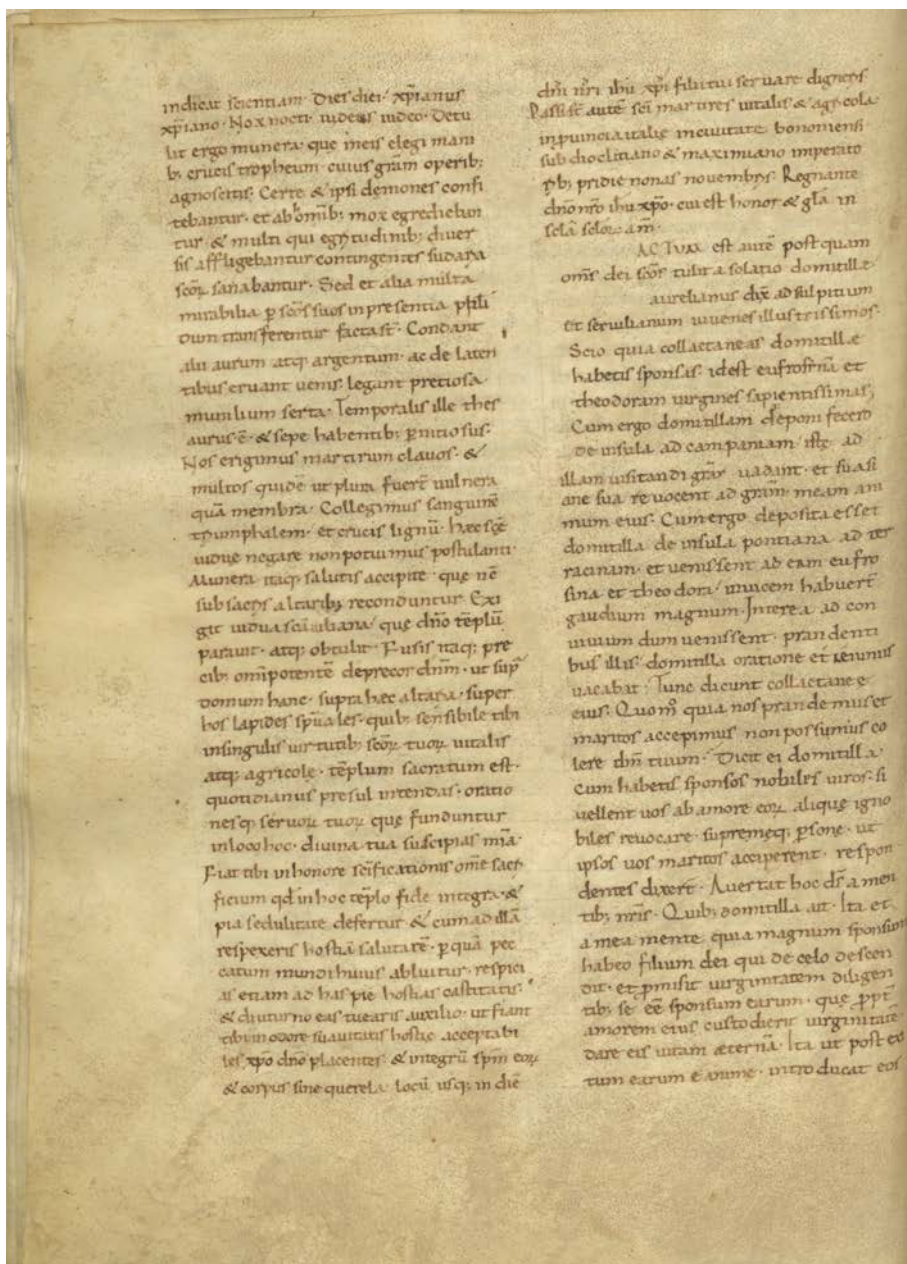 indicat scientiam. Dies diei. xp̄ianus
xp̄iano. Nox nocti. iudeus iudeo. Detu
lit ergo munera. que meis elegi mani
b; crucis tropheum. cuius grām operib;
agnoscitis. Certe & ipsi demones confi
tebantur. et ab omnib; mox egrediebun
tur. & multi qui egrytudinib; diuer
sis affligebantur contingentes sudaria
scōꝝ sanabantur. Sed et alia multa
mirabilia ꝑ scōs suos in presentia
dum transferentur facta st̄. Condant
alii aurum atq; argentum. ac de laten
tibus eruant uenis. legant pretiosa
munilium serta. Temporalis ille thes
aurus ē. & sepe habentib; ꝑnitiosus.
Nos erigimus martirum clauos. &
multos quidē ut plura fuer̄t uulnera
quā membra. Collegimus sanguinē
triumphalem. et crucis lignū. hæc scē
uidue negare non potuimus postulanti.
Munera itaq; salutis accipite. que nē
sub sacris altarib; reconduntur. Exi
git uidua scā iuliana. quę dn̄o tēplū
parauit. atq; obtulit. Fusis itaq; pre
cib; omīpotentē deprecor dn̄m. ut sup̄
domum hanc. supra hec altaria. super
hos lapides sp̄uales. quib; sensibile tibi
in singulis uirtutib; scōꝝ tuoꝝ uitalis
atq; agricolę. tēplum sacratum est.
quotidianus presul intendas. oratio
nesq; seruoꝝ tuoꝝ quę funduntur
in loco hoc. diuina tua suscipias mīa.
Fiat tibi in honore scīficationis om̄e sacri
ficium qd̄ in hoc tēplo fide integra. &
pia sedulitate defertur & cum ad illā
respexeris hostiā salutarē. ꝑ quā pec
catum mundi huius abluitur. respici
as etiam ad has pie hostias castitatis.
& diuturno eas tuearis auxilio. ut fiant
tibi in odore suauitatis hostie acceptabi
les xp̄o dn̄o placentes. & integrū sp̄m eoꝝ
& corpus sine querela. locū usq; in diē
dn̄i nr̄i ihū xp̄i filii tui seruare digneris
Passi st̄ autē scī martires uitalis & agricola
in puincia italię in ciuitate bononiensi
sub dioclitiano & maximiano imperato
rib; pridie nonas novembris. Regnante
dn̄o nr̄o ihū xp̄o. cui est honor & glā in
sclā scloꝝ am̄.
est autē post quam
om̄s dei scōs tulit a solatio domitillæ
aurelianus dix̄ ad sulpitium
et seruilianum iuuenes illustrissimos.
Scio quia collactaneas domitillæ
habetis sponsas. idest eufrosinā et
theodoram uirgines sapientissimas,
Cum ergo domitillam deponi fecero
de insula ad campaniam. istę ad
illam uisitandi grā uadant. et suasi
one sua reuocent ad grām meam ani
mum eius. Cum ergo deposita esset
domitilla de insula pontiana ad ter
racinam. et uenissent ad eam eufro
sina et theodora. inuicem habuer̄t
gaudium magnum. Interea ad con
uiuium dum uenissent. prandenti
bus illis. domitilla oratione et ieiuniis
uacabat. Tunc dicunt collactaneę
eius. Quom̄ quia nos prandemus et
maritos accepimus non possumus co
lere dm̄ tuum. Dicit ei domitilla.
Cum habetis sponsos nobiles uiros. si
uellent uos ab amore eoꝝ alique igno
biles reuocare. supremeq; ꝑsone. ut
ipsos uos maritos acciperent. respon
dentes dixer̄t. Auertat hoc ds̄ a men
tib; nr̄is. Quib; domitilla ait. Ita et
a mea mente quia magnum sponsum
habeo filium dei qui de celo descen
dit. et ꝓmisit uirginitatem diligen
tib; se eē sponsum earum. que ꝓpt̄
amorem eius custodierit uirginitatē.
dare eis uitam æternā. Ita ut post exi
tum earum e anime. introducat eos